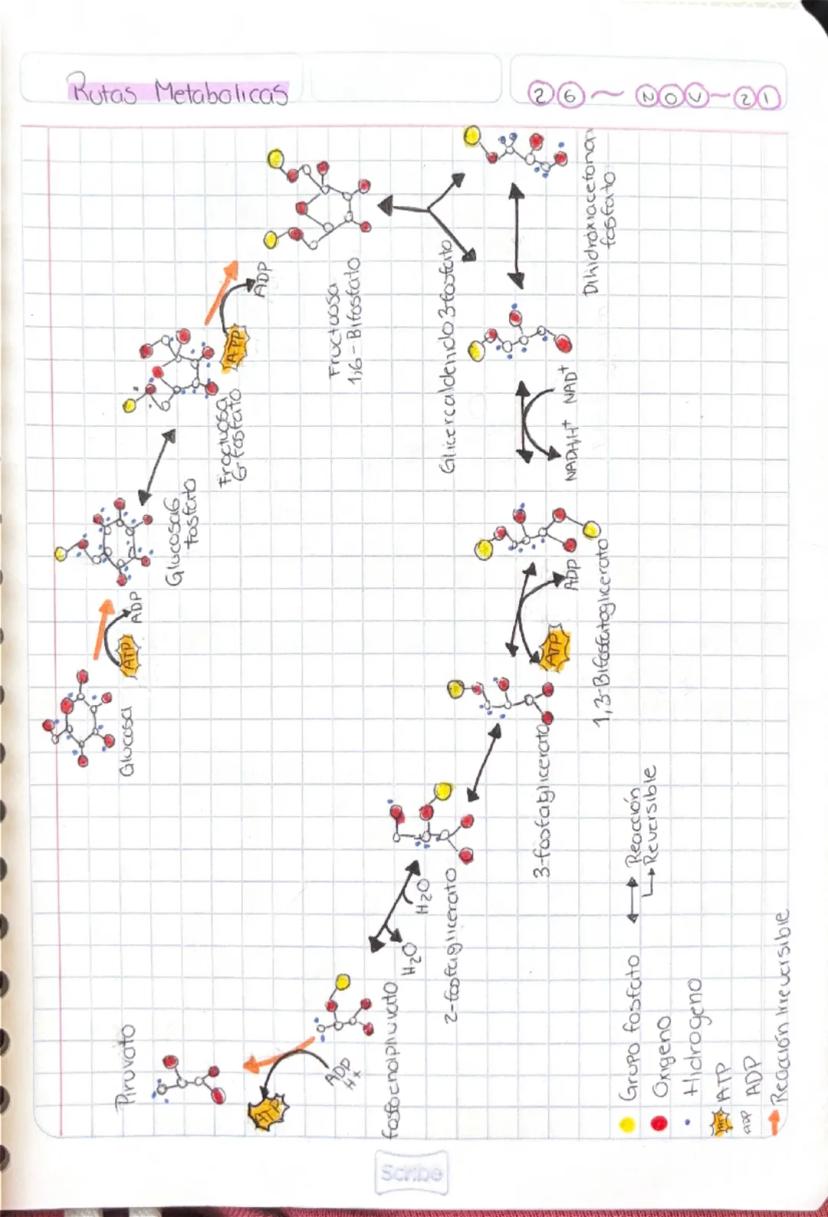 Rutas Metabolicas
26 ~ NOV ~ 21
Glucosa
ATP
ADP
Glucosa6
fosfato
Fructuosa
6-fosfato
ATP
ADP
Fructuosa
1,6-Bifosfato
Dihidroxiacetona
fosfato
Glicercaldehido3fosfato
NAD+
NADH/H+
1,3-Bifosfatoglicerato
ADP
ATP
3-fosfoglicerato
2-fosfoglicerato
H2O
H2O
fosfoenolpiruvato
ADP
H+
ATP
Piruvato
Grupo fosfato
Oxigeno
Hidrogeno
ATP ATP
ADP ADP
Reacción Irreversible
Reacción
Reversible
Scribe